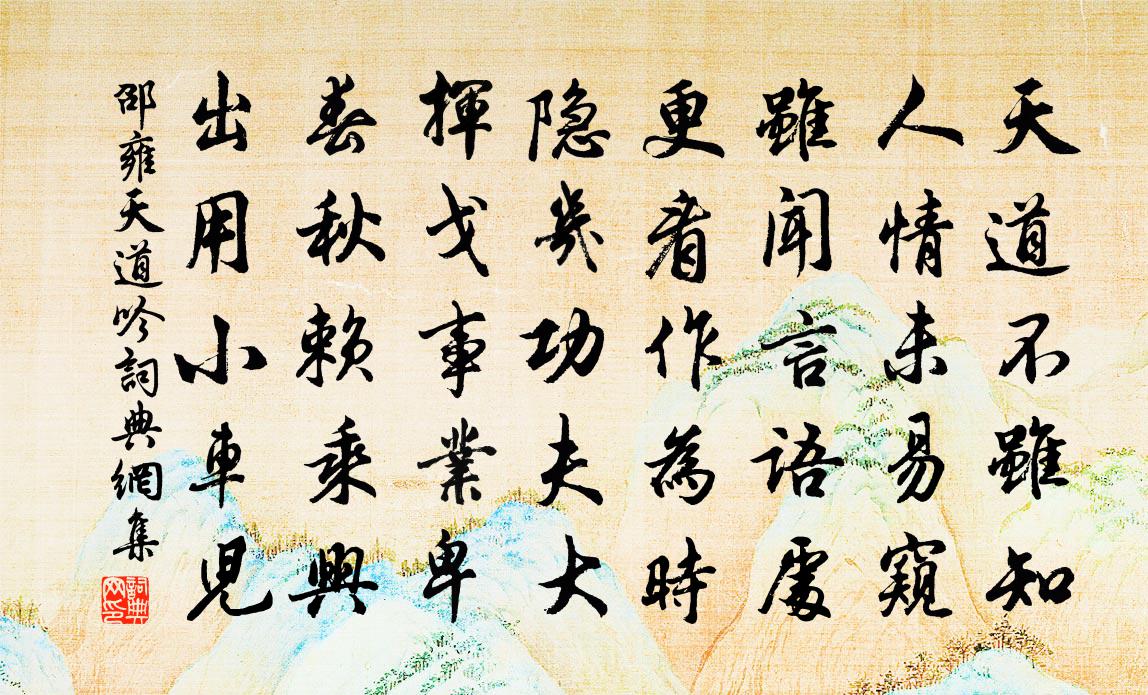 天道不雖知
人情未易窺
雖聞言語處
更看作為時
隐幾功夫大
揮戈事業卑
春秋賴乘興
出用小車兒
邵雍天道吟詞典網集
詞典网印